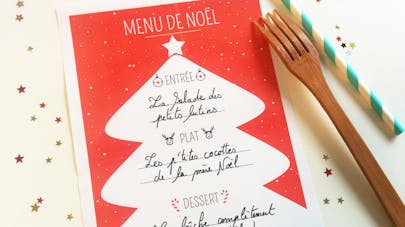 MENU DE NOËL
ENTRÉE
La Salade des
petits lutins
PLAT
Les p'tites cocottes
de la mère Noël
DESSERT
bûche complètement